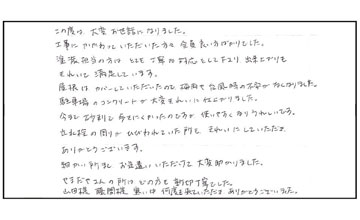 この度は、大変お世話になりました。
工事にかかわっていただいた方々全員良い方ばかりでした。
塗装担当の方は とても丁寧な対応をして下さり、出来上がりも
きれいで満足しています。
屋根はカバーしていただいたので、梅雨や台風時の不安がなくなりました。
駐車場のコンクリートが大変きれいに仕上がりました。
今まで砂利で歩きにくかったのですが 使いやすくなりうれしいです。
立水栓の周りがひびわれていた所も きれいにしていただき
ありがとうございます。
細かい所まで お気遣いいただけて大変助かりました。
やまだやさんの所はどの方も親切丁寧でした。
山田様 藤間様 暑い中何度も来ていただき ありがとうございました。